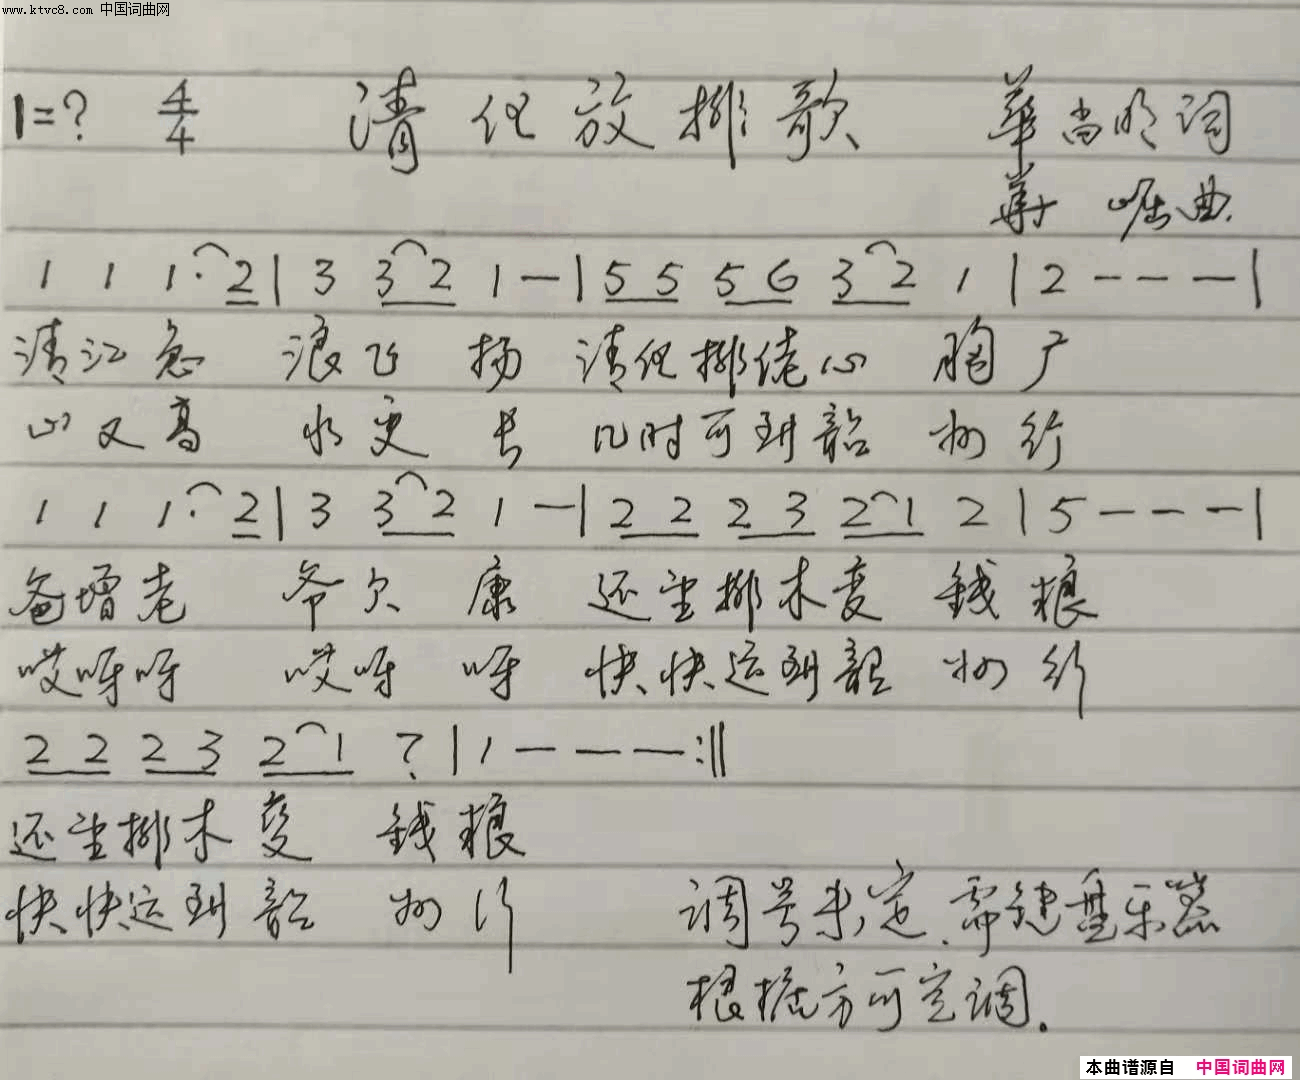 www.ktvc8.com 中国词曲网
1=? 4/4 清化放排歌 華尚明词
華崛曲.
1 1 1· 2 | 3 3 2 1 — | 5 5 5 6 3 2 1 | 2 — — — |
清江急 浪飞 扬 清化排佬心 胸广
山又高 水更 长 几时可到韶 州行
1 1 1· 2 | 3 3 2 1 — | 2 2 2 3 2 1 2 | 5 — — — |
爸增老 爷欠 康 还望排木变 錢粮
哎呀呀 哎呀 呀 快快运到韶 州行
2 2 2 3 2 1 ? | 1 — — — :||
还望排木变 錢粮
快快运到韶 州行
调号未定.需键盘乐器
根据方可定调。
本曲谱源自 中国词曲网